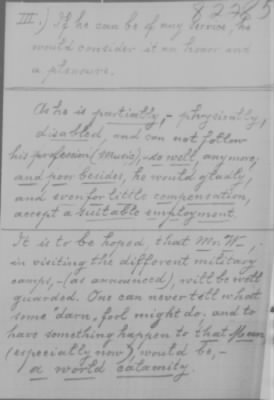 82285
III.) If he can be of any service, he
would consider it an honor and
a pleasure.
As he is partially, - physically,
disabled, and can not follow
his profession (Music), - so well, anymore,
and poor besides, he would gladly,
and even for little compensation,
accept a suitable employment.
It is to be hoped, that Mr. W-,
in visiting the different military
camps, - (as announced), will be well
guarded. One can never tell what
some "darn, fool might do. and to
have something happen to that Man
(especially now), would be, -
a world calamity.